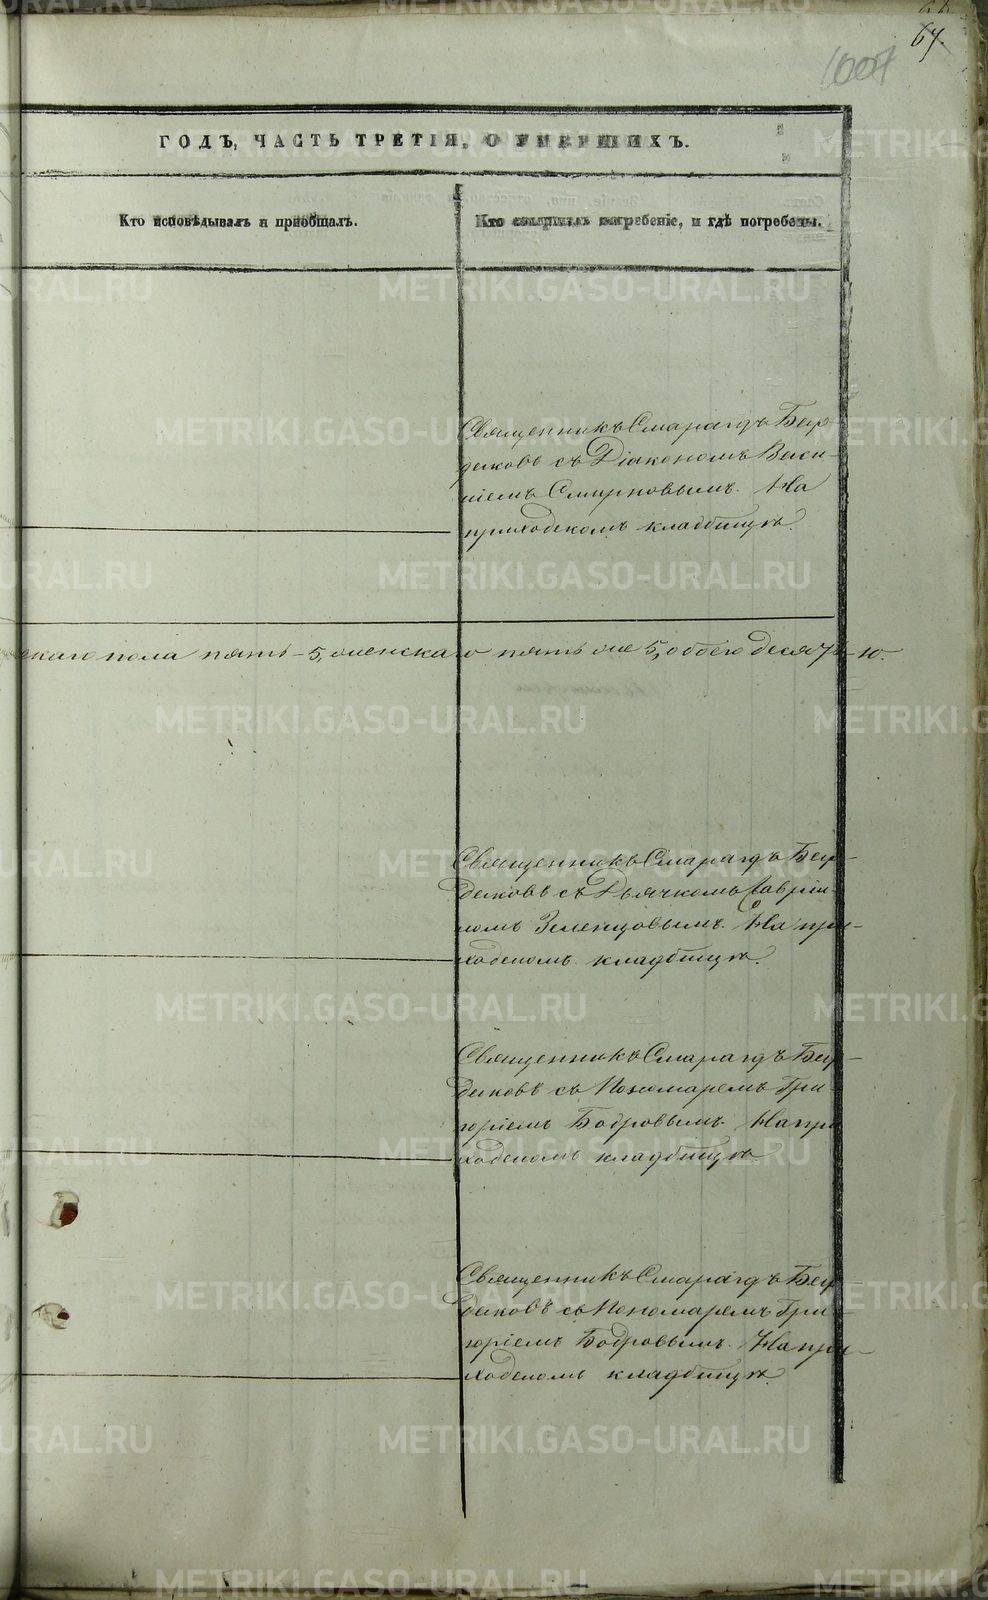 67.
1007
ГОДЪ, ЧАСТЬ ТРЕТІЯ, О УМЕРШИХЪ.
Кто исповѣдывалъ и пріобщалъ.
Кто совершалъ погребеніе, и гдѣ погребены.
Священникъ Смарагдъ Бер-
дековъ съ Діакономъ Васи-
ліемъ Смирновымъ. На
приходскомъ кладбищѣ.
скаго пола пять - 5, женскаго пять же 5, обоего десять - 10.
Священникъ Смарагдъ Бер-
дековъ съ Дьячкомъ Гаврі-
ломъ Зеленцовымъ. На при-
ходскомъ кладбищѣ.
Священникъ Смарагдъ Бер-
дековъ съ Пономаремъ Гри-
горіемъ Бодровымъ. На при
ходскомъ кладбищѣ
Священникъ Смарагдъ Бер-
дековъ съ Пономаремъ Гри-
горіемъ Бодровымъ. На при-
ходскомъ кладбищѣ.
METRIKI.GASO-URAL.RU